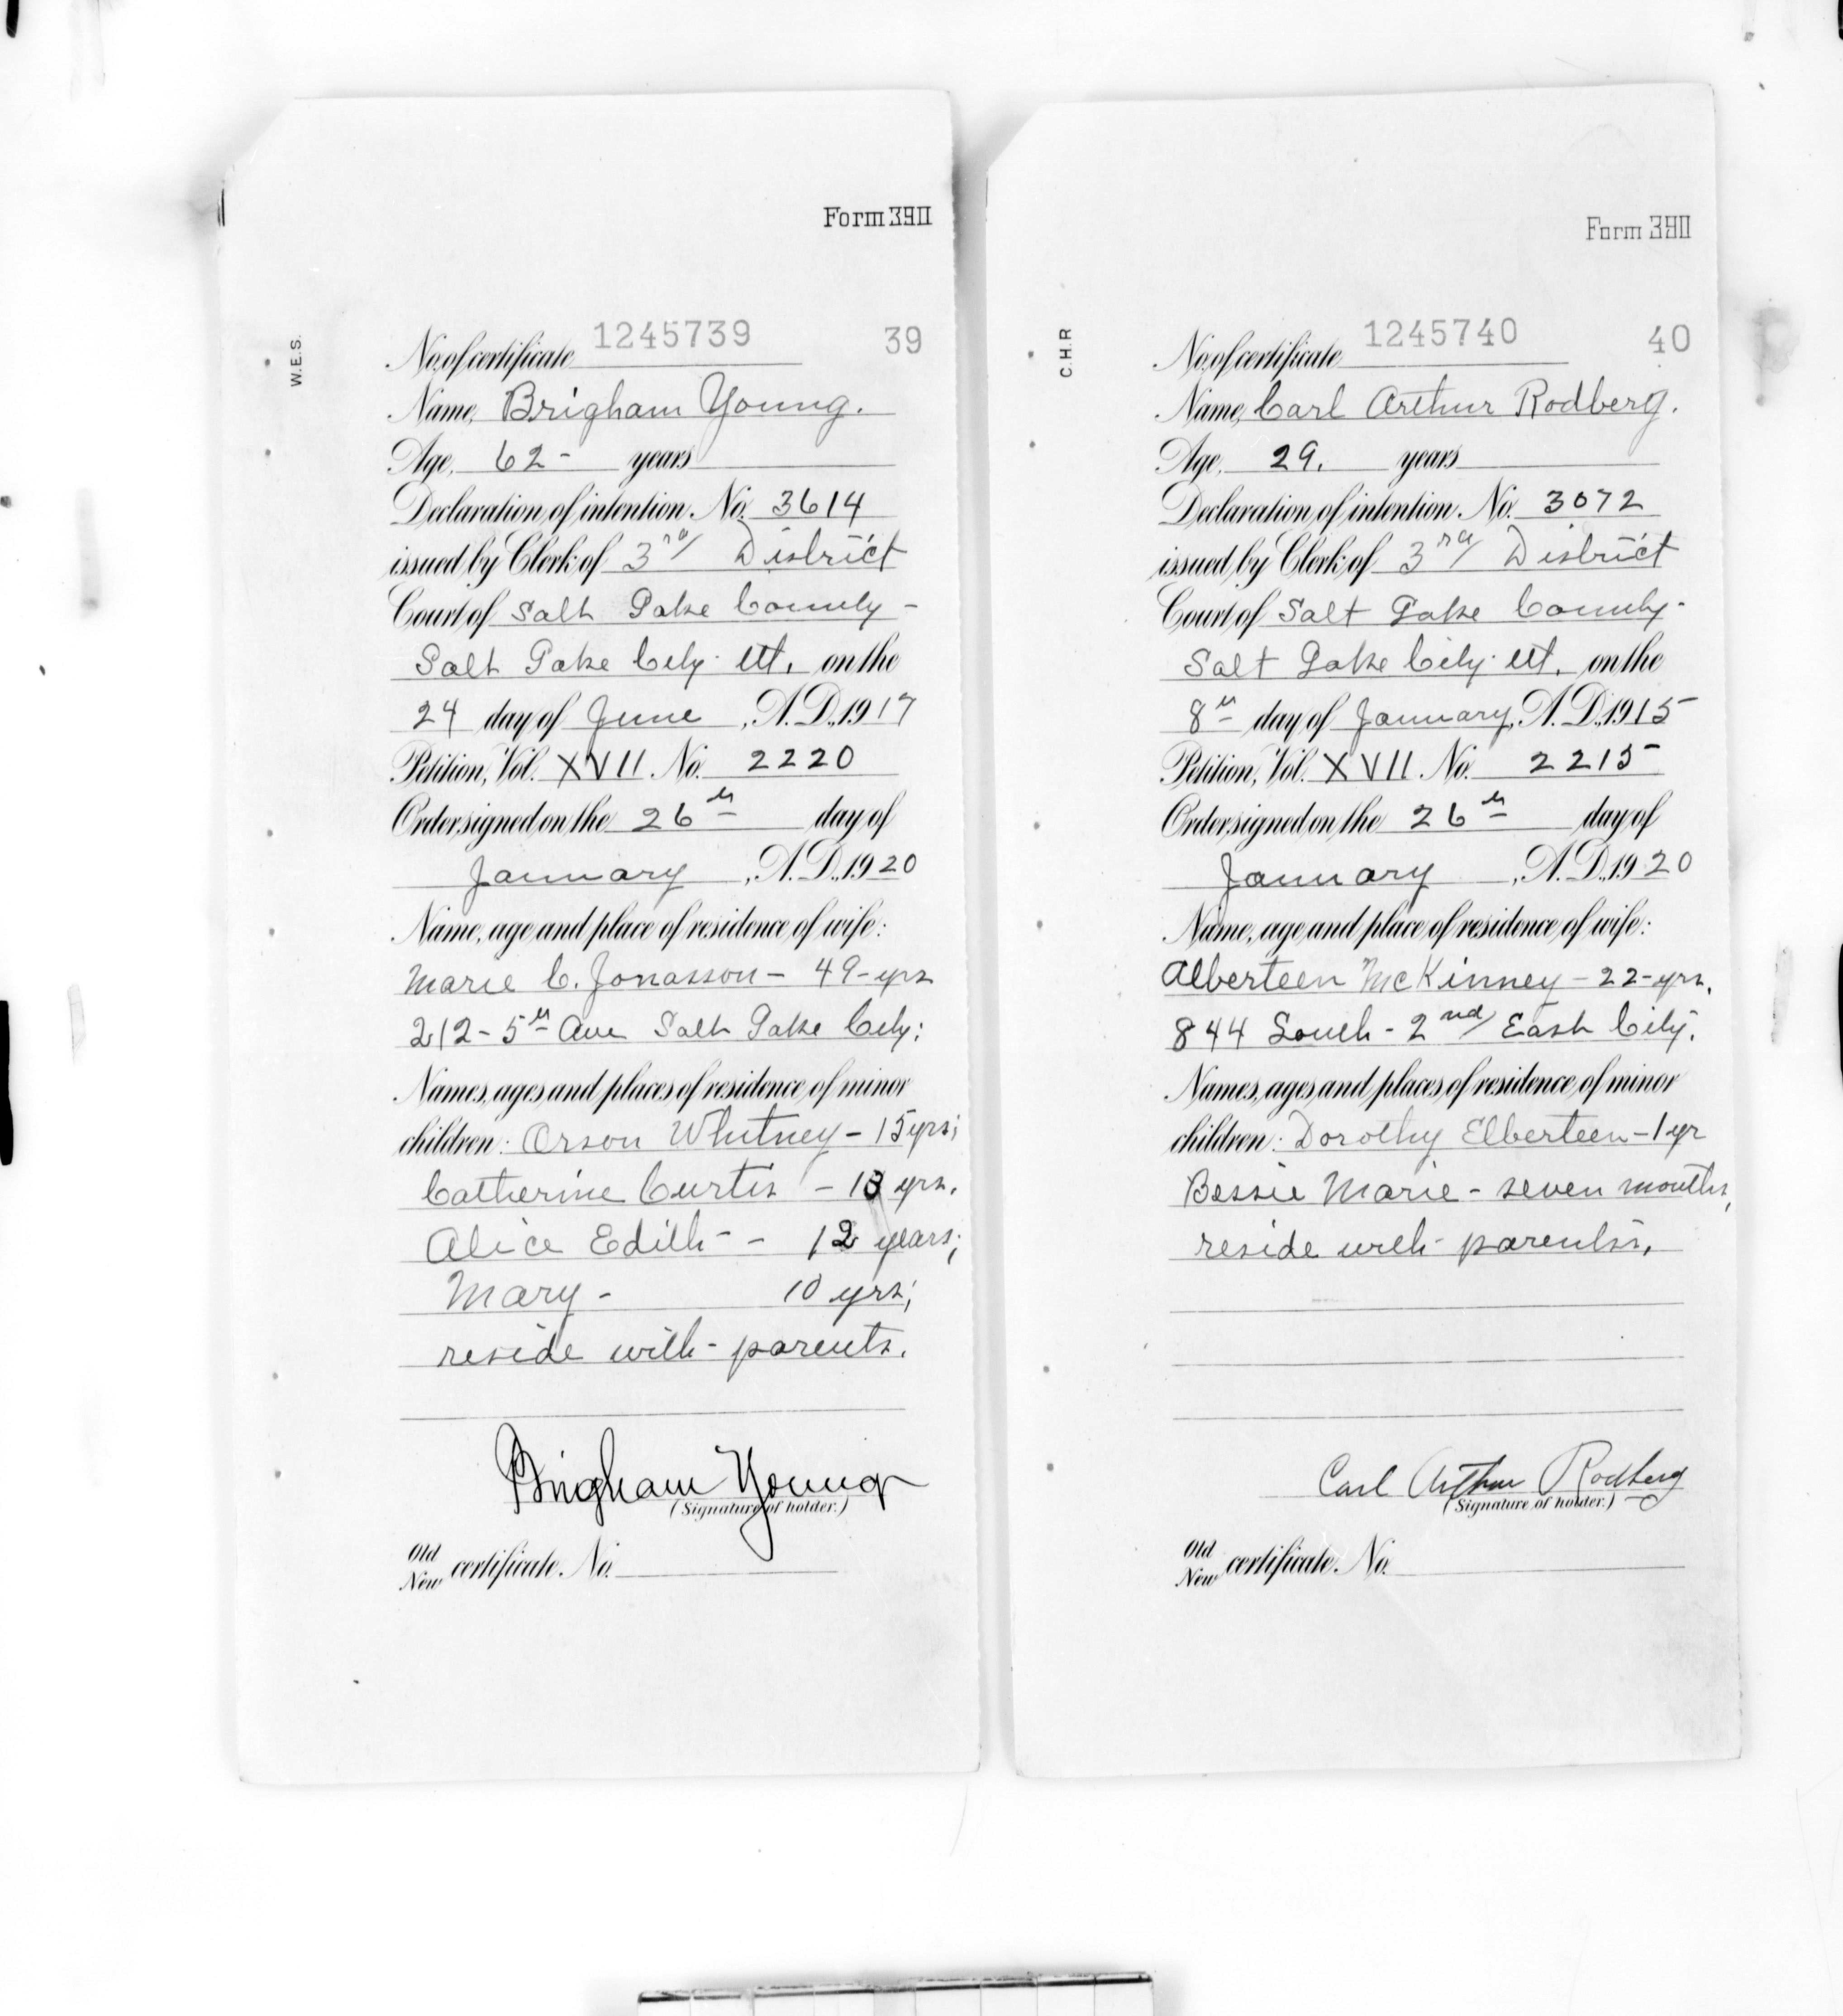 Form 390
W.E.S.
No. of certificate 1245739 39
Name, Brigham Young.
Age, 62 - years
Declaration of intention. No. 3614
issued by Clerk of 3rd District
Court of Salt Lake County -
Salt Lake City. Ut. on the
24 day of June, A.D. 1917
Petition, Vol. XVII. No. 2220
Order signed on the 26th day of
January, A.D. 1920
Name, age and place of residence of wife:
Marie C. Jonasson - 49 - yrs
212 - 5th Ave Salt Lake City;
Names, ages and places of residence of minor
children: Orson Whitney - 15 yrs;
Catherine Curtis - 13 yrs.
Alice Edith - - 12 years;
Mary - 10 yrs;
reside with - parents.
Brigham Young
(Signature of holder.)
Old
New certificate. No.
Form 390
C.H.R
No. of certificate 1245740 40
Name, Carl Arthur Rodberg.
Age, 29. years
Declaration of intention. No. 3072
issued by Clerk of 3rd District
Court of Salt Lake County -
Salt Lake City. Ut. on the
8th day of January, A.D. 1915
Petition, Vol. XVII. No. 2215
Order signed on the 26th day of
January, A.D. 1920
Name, age and place of residence of wife:
Alberteen McKinney - 22 - yrs.
844 South - 2nd East City.
Names, ages and places of residence of minor
children: Dorothy Elberteen - 1 yr
Bessie Marie - seven months,
reside with - parents.
Carl Arthur Rodberg
(Signature of holder.)
Old
New certificate. No.